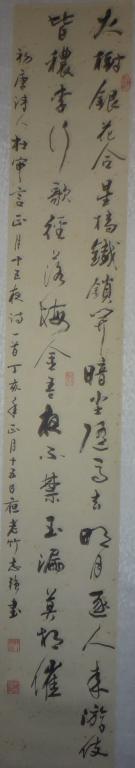 火樹銀花合星橋鐵鎖開暗塵隨馬去明月逐人來游伎
皆穠李行歌徑落梅金吾夜不禁玉漏莫相催
初唐詩人杜審言正月十五夜詩一首丁亥年正月十五日夜老竹志強書